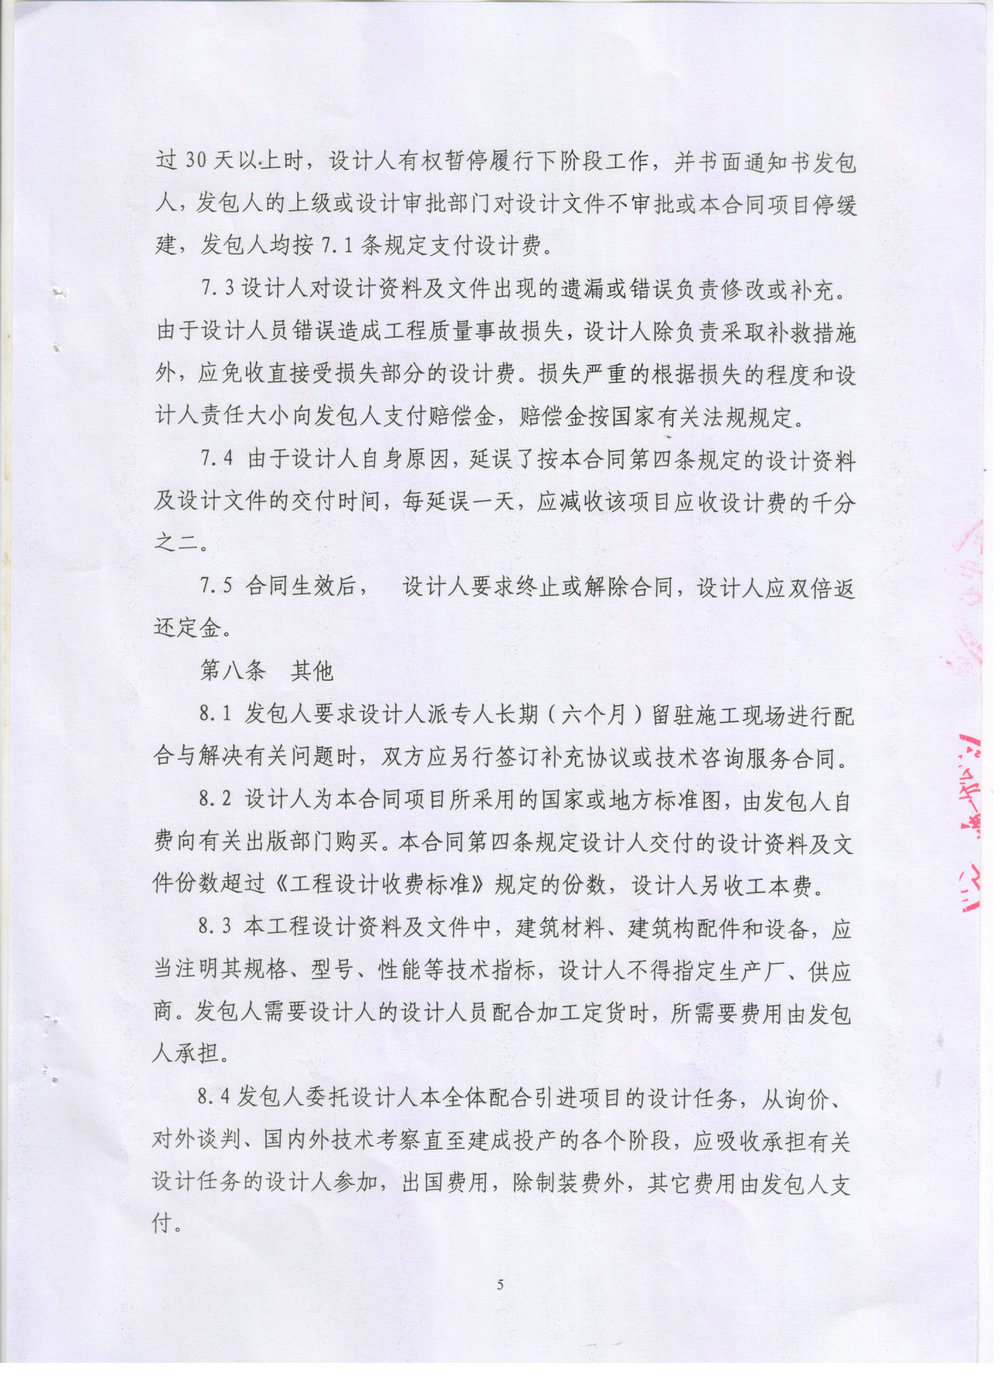 过 30 天以上时，设计人有权暂停履行下阶段工作，并书面通知书发包
人，发包人的上级或设计审批部门对设计文件不审批或本合同项目停缓
建，发包人均按 7.1 条规定支付设计费。
7.3设计人对设计资料及文件出现的遗漏或错误负责修改或补充。
由于设计人员错误造成工程质量事故损失，设计人除负责采取补救措施
外，应免收直接受损失部分的设计费。损失严重的根据损失的程度和设
计人责任大小向发包人支付赔偿金，赔偿金按国家有关法规规定。
7.4 由于设计人自身原因，延误了按本合同第四条规定的设计资料
及设计文件的交付时间，每延误一天，应减收该项目应收设计费的千分
之二。
7.5 合同生效后， 设计人要求终止或解除合同，设计人应双倍返
还定金。
第八条 其他
8.1 发包人要求设计人派专人长期（六个月）留驻施工现场进行配
合与解决有关问题时，双方应另行签订补充协议或技术咨询服务合同。
8.2 设计人为本合同项目所采用的国家或地方标准图，由发包人自
费向有关出版部门购买。本合同第四条规定设计人交付的设计资料及文
件份数超过《工程设计收费标准》规定的份数，设计人另收工本费。
8.3 本工程设计资料及文件中，建筑材料、建筑构配件和设备，应
当注明其规格、型号、性能等技术指标，设计人不得指定生产厂、供应
商。发包人需要设计人的设计人员配合加工定货时，所需要费用由发包
人承担。
8.4发包人委托设计人本全体配合引进项目的设计任务，从询价、
对外谈判、国内外技术考察直至建成投产的各个阶段，应吸收承担有关
设计任务的设计人参加，出国费用，除制装费外，其它费用由发包人支
付。
5